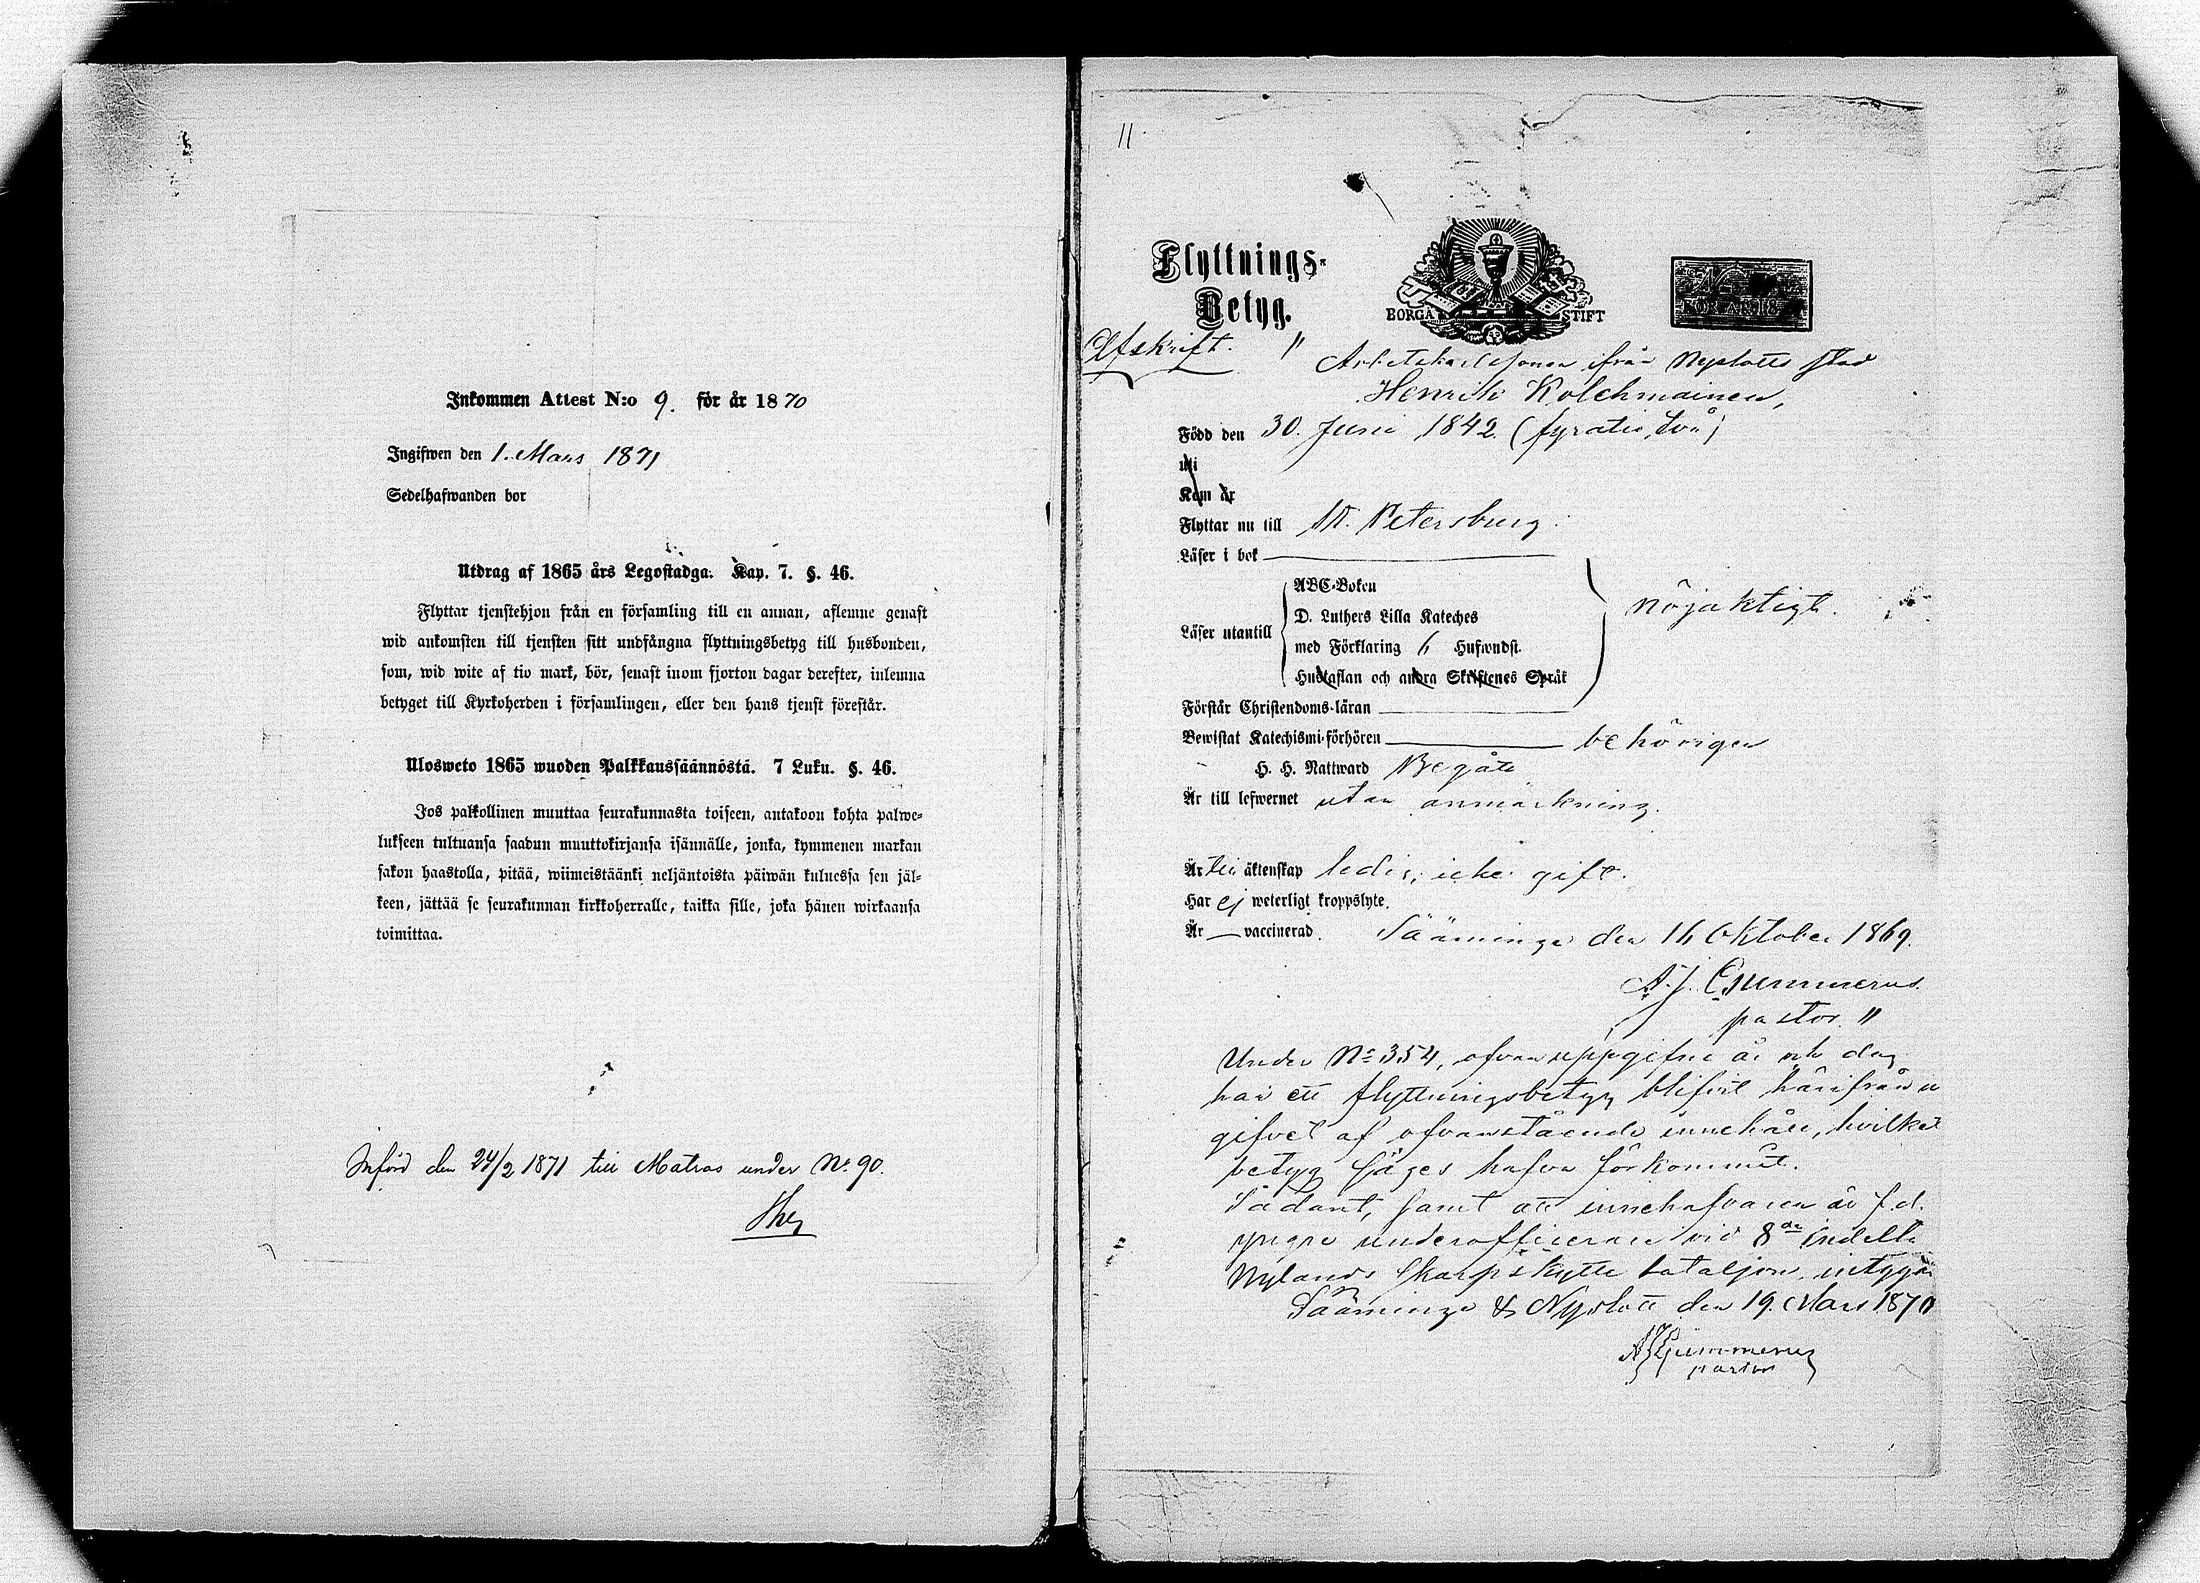 Inkommen Attest N:o 9. för år 1870
Ingifwen den 1. Mars 1871
Sedelhafwanden bor
Utdrag af 1865 års Legostadga. Kap. 7. §. 46.
Flyttar tjenstehjon från en församling till en annan, aflemne genast
wid ankomsten till tjensten sitt undfångna flyttningsbetyg till husbonden,
som, wid wite af tio mark, bör, senast inom fjorton dagar derefter, inlemna
betyget till Kyrkoherden i församlingen, eller den hans tjenst förestår.
Ulosweto 1865 wuoden Palkkaussäännöstä. 7 Luku. §. 46.
Jos palkollinen muuttaa seurakunnasta toiseen, antakoon kohta palwe-
lukseen tultuansa saadun muuttokirjansa isännälle, jonka, kymmenen markan
sakon haastolla, pitää, wiimeistäänki neljäntoista päiwän kuluessa sen jäl-
keen, jättää se seurakunnan kirkkoherralle, taikka sille, joka hänen wirkaansa
toimittaa.
Införd den 24/2 1871 till Matros under No. 90.
11
Flyttnings-
Betyg.
BORGÅ STIFT
Afskrift. " Arbetskarlssonen ifrån Nyslotts stad
Henrik Kolehmainen,
Född den 30. Juni 1842. (fyratio två)
uti
Kom år
Flyttar nu till St. Petersburg.
Läser i bok
Läser utantill
ABC-Boken
D. Luthers Lilla Kateches
med Förklaring 6 Hufwudst.
Hustaflan och andra Skriftenes Språk
nöjaktigt.
Förstår Christendoms-läran
Bewistat Katechismi-förhören behörigen
H. H. Nattward Begått
Är till lefwernet utan anmärkning.
Är till äktenskap ledig, icke gift.
Har ej weterligt kroppslyte.
Är — vaccinerad. Sääminge den 16 Oktober 1869.
A. J. Gummerus.
pastor. "
Under No 354, ofvan uppgifne år och dag
har ett flyttningsbetyg blifvit härifrån u
gifvet af ofvanstående innehåll, hvilket
betyg säges hafva förkommit.
Sådant, samt att innehafvaren är f.d.
yngre underofficerare vid 8de indelta
Nylands Skarpskytte bataljon, intygar
Sääminge & Nyslott den 19. Mars 1870
A J Gummerus
pastor